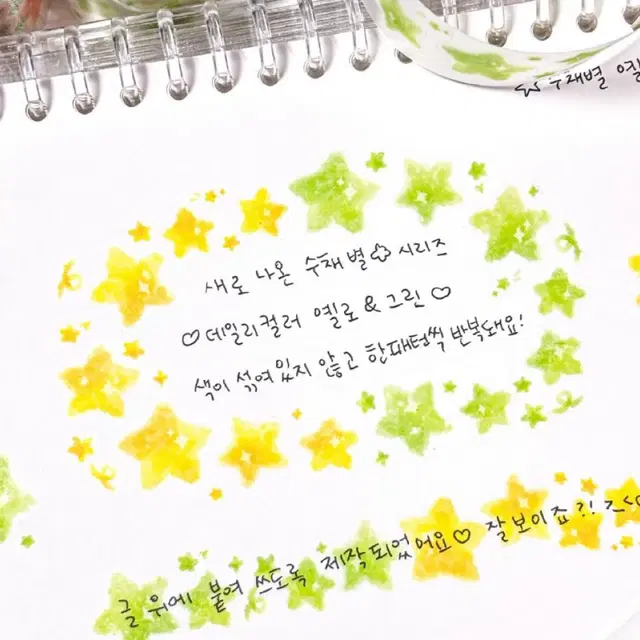 ☆ 수채별 옐
새로 나온 수채별☆ 시리즈
♡데일리컬러 옐로&그린♡
색이 섞여있지 않고 한패턴씩 반복돼요!
글 위에 붙여 쓰도록 제작되었어요♡ 잘보이죠?!